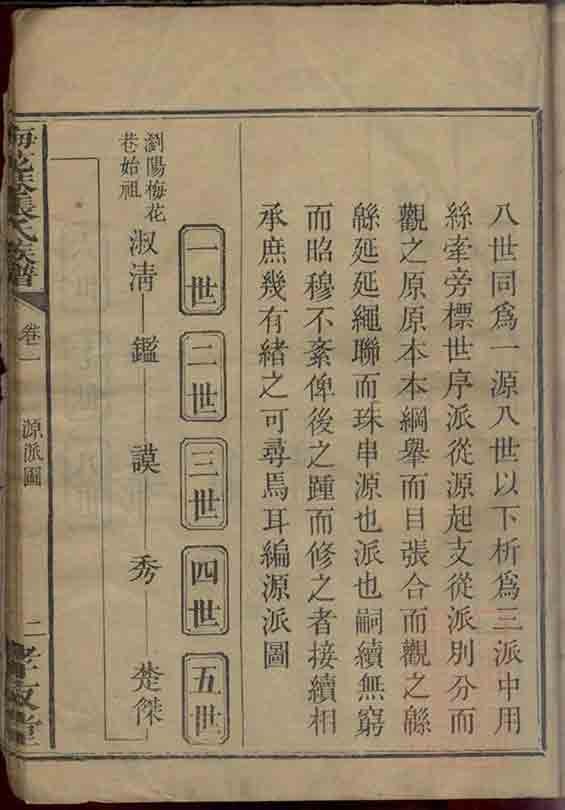 八世同爲一源八世以下析爲三派中用
絲牽旁標世序派從源起支從派別分而
觀之原原本本綱舉而目張合而觀之緜
緜延延繩聯而珠串源也派也嗣續無窮
而昭穆不紊俾後之踵而修之者接續相
承庶幾有緒之可尋焉耳編源派圖
一世 二世 三世 四世 五世
瀏陽梅花
巷始祖
淑清 鑑 謨 秀 楚傑
梅花巷張氏族譜 卷一 源派圖 二 孝友堂